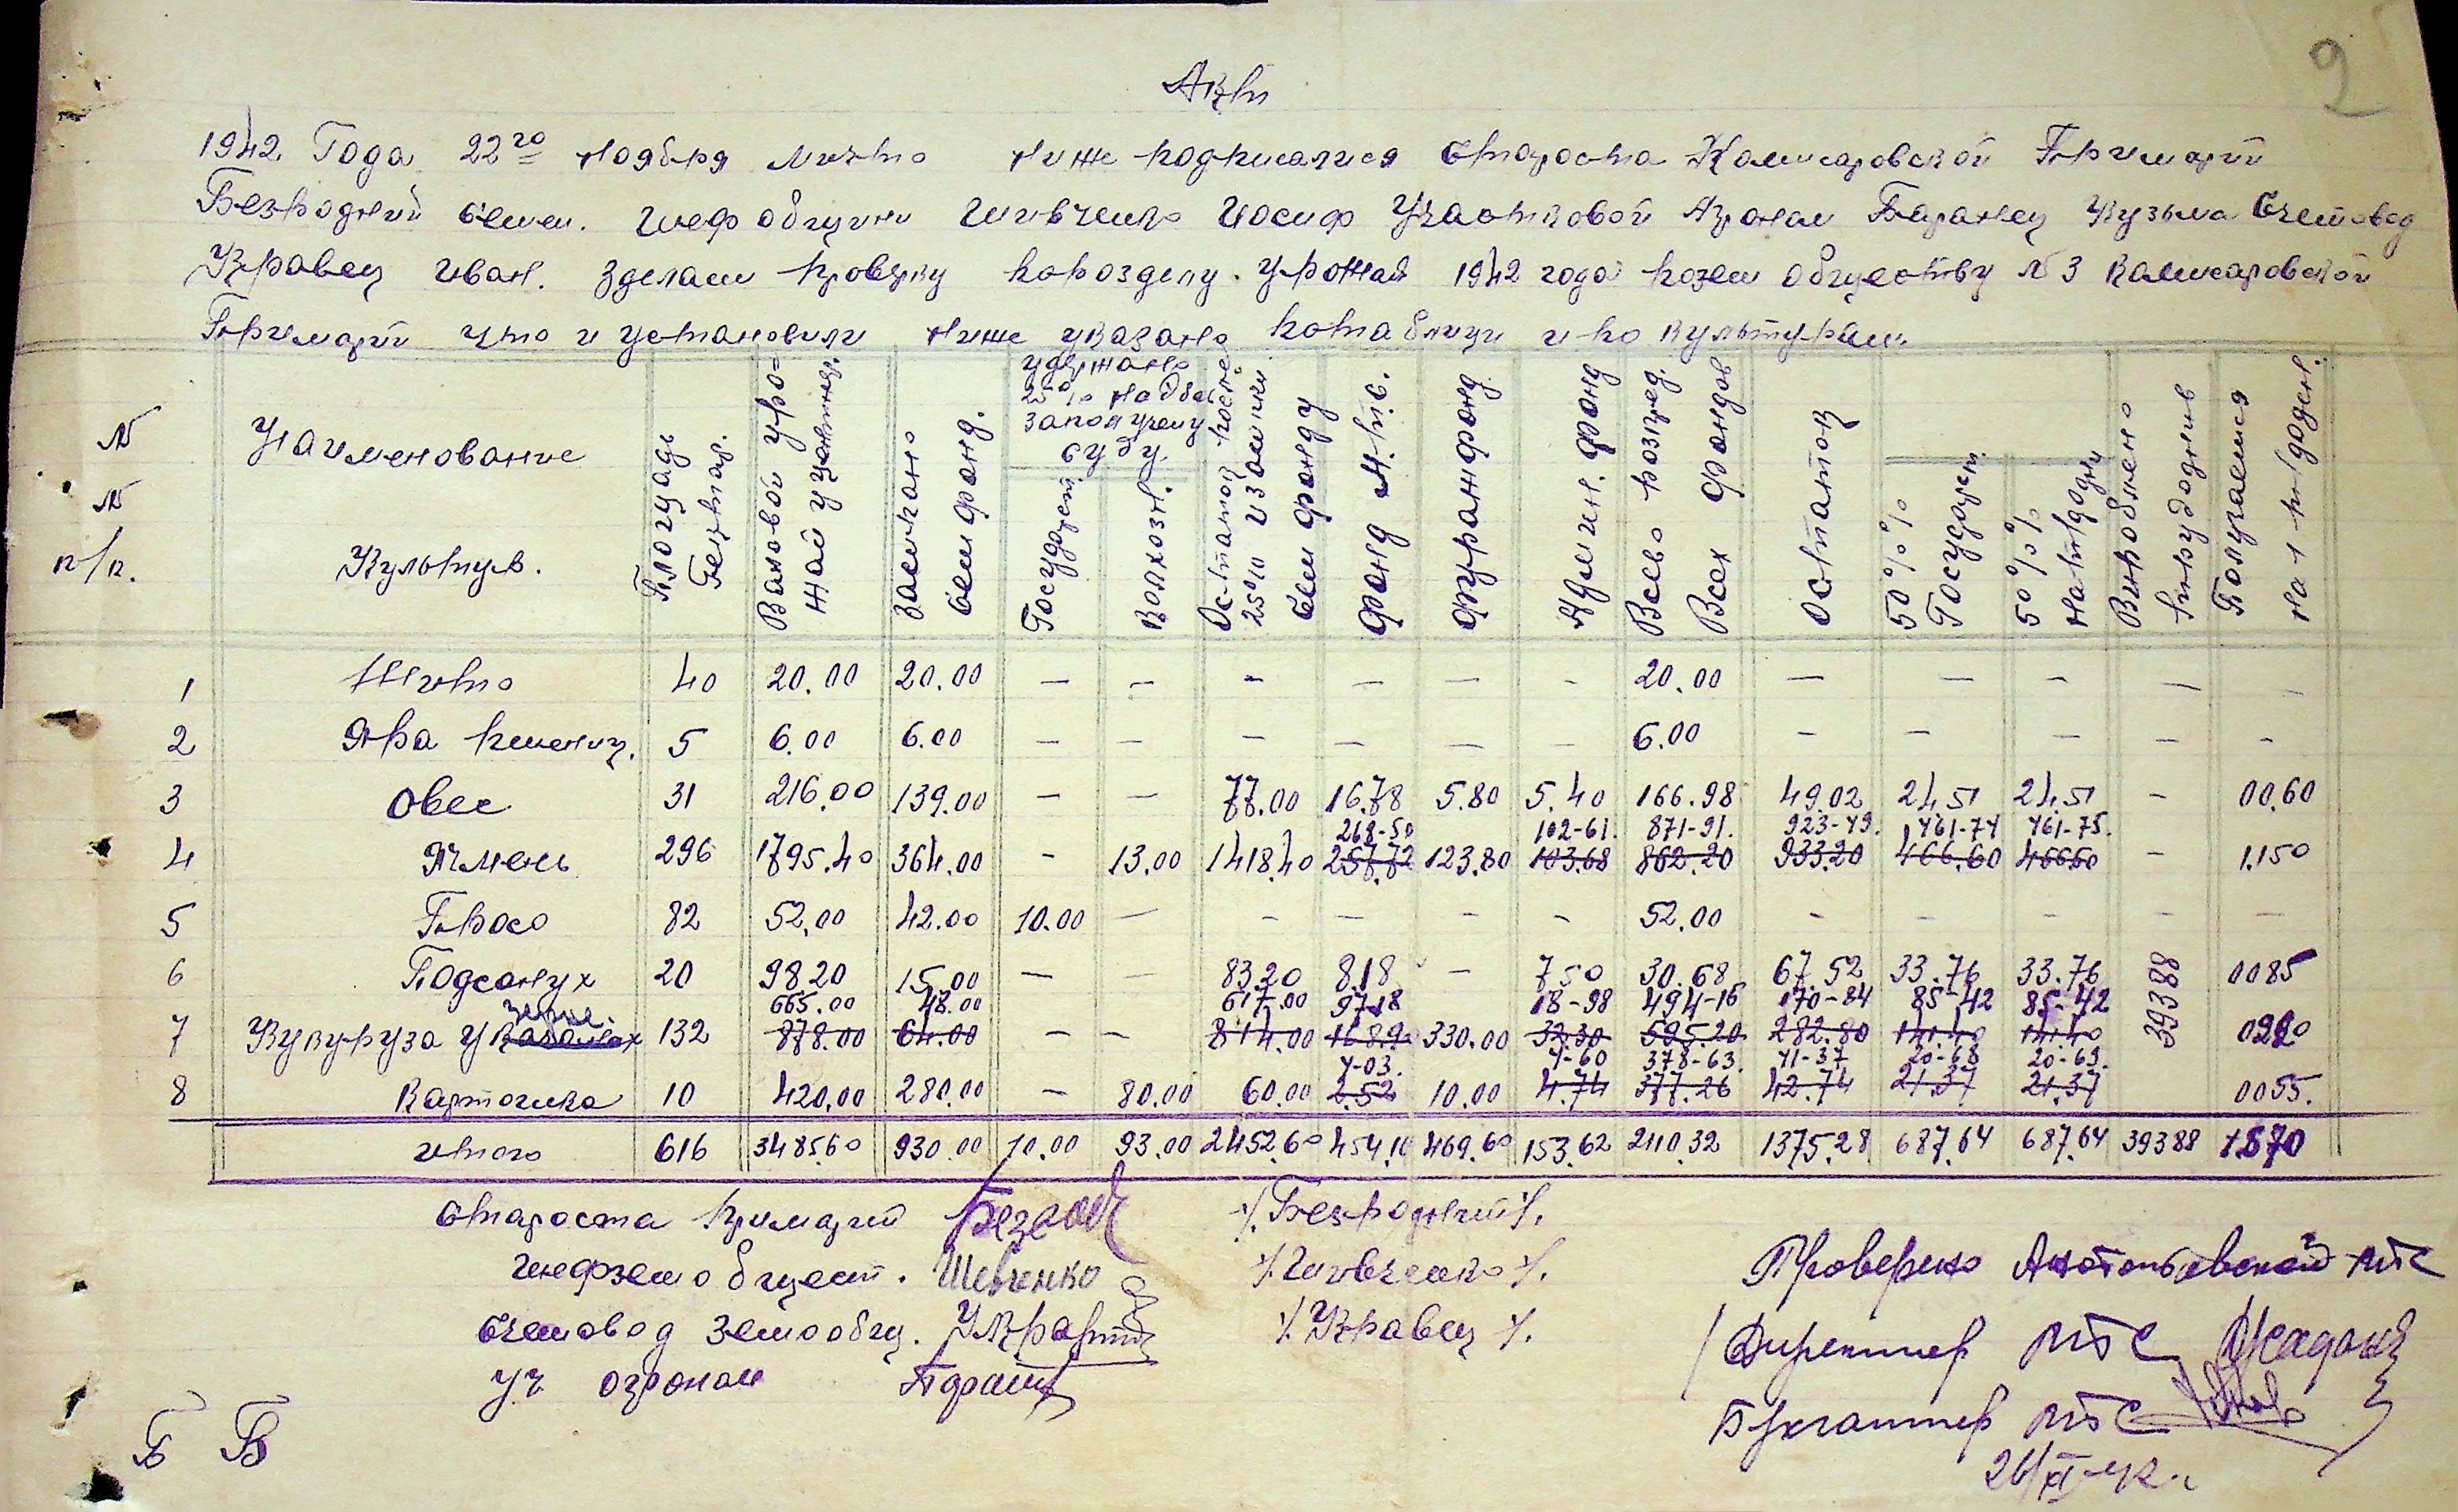 2
Акт
1942 Года 22го Ноября мисто ниже подписалися Староста Комисаровской Примарии
Безродний Семен. Шеф общини Шивченко Иосиф Участковой Агроном Баранец Кузьма Счетовод
Кравец Иван. Зделали проверку порозделу. урожая 1942 года позем обществу №3 Комисаровской
Примарии что и установили ниже указано потаблици и по культурам
№ № п/п. | Наименование Культур. | Площадь Гектар. | Валовой уро=жай уцентнер. | Засипано Сем фонд. | удержано 25% надбав заполучену суду. Государст. | Колхозн. | Остаток после 25% изасипки Сем фонду | Фонд М.Т.С. | Фуражфонд | Админ. фонд | Всево розпред. Всех фондов | Остаток | 50%% Государст. | 50%% Натрудодни | Вироблено трудоднив | Получаетса на 1 трудоден.
1 Жито 40 20.00 20.00 — — - — — - 20.00 — — - — -
2 Яра пшениц. 5 6.00 6.00 — — — — — — 6.00 — — — — -
3 Овес 31 216.00 139.00 — — 77.00 16.78 5.80 5.40 166.98 49.02 24.51 24.51 - 00.60
268-50 102-61. 871-91. 923-49. 461-74 461-75.
4 Ячмень 296 1795.40 364.00 - 13.00 1418.40 257.72 123.80 103.68 862.20 933.20 466.60 466.60 - 1.150
5 Просо 82 52.00 42.00 10.00 — - — - - 52.00 - - - - —
6 Подсонух 20 98.20 15.00 — — 83.20 8.18 — 7.50 30.68 67.52 33.76 33.76 39388 0085
зерне 665.00 48.00 617.00 97.18 18-98 494-16 170-84 85-42 85-42
7 Кукуруза у Качанах 132 878.00 64.00 — - 814.00 330.00 32.30 595.20 282.80 141.40 141.40
4-03. 4-60 378-63. 41-37 20-68 20-69.
8 Картошка 10 420.00 280.00 — 80.00 60.00 2.52 10.00 4.74 377.26 42.74 21.37 21.37 0055.
итого 616 3485.60 930.00 10.00 93.00 2452.60 469.60 153.62 2110.32 1375.28 687.64 687.64 39388
Староста примарии /.Безродний/.
Шефземобщест. Шевченко /.Шивченко/.
Счетовод Земообщ. /.Кравец/.
Уч огроном
Проверено МТС
Директор МТС
Бухгалтер МТС
Б В
26/XI-42 г.